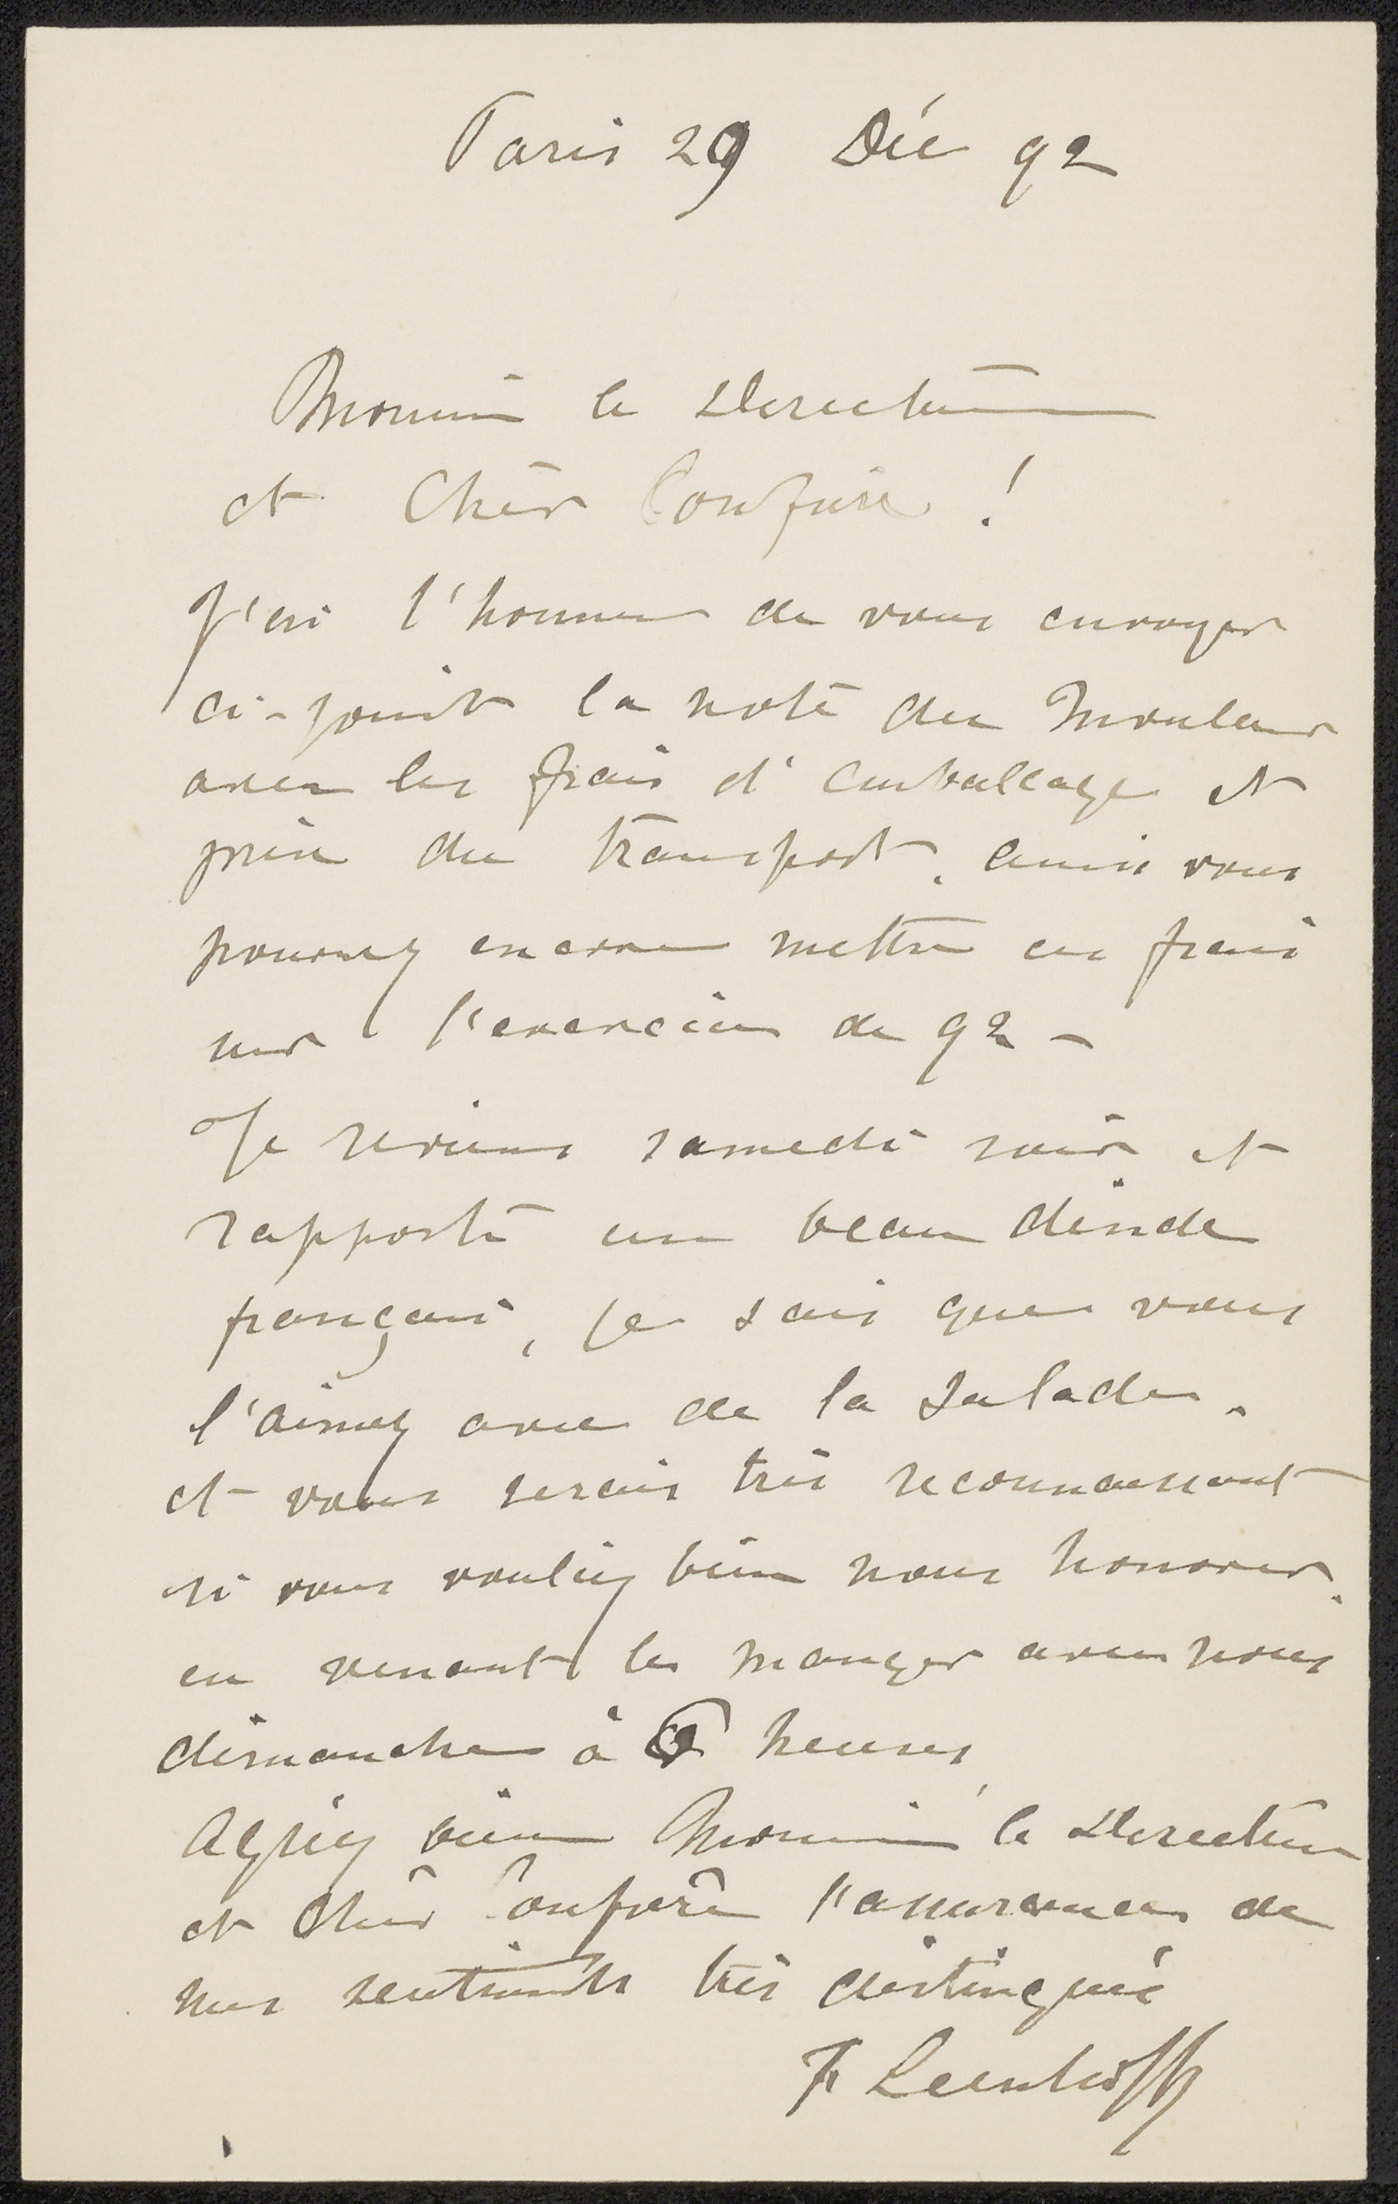 Paris 29 Déc 92
Monsieur le Directeur
et Cher Confrère !
J'ai l'honneur de vous envoyer
ci-joint la note du Mouleur
avec les frais d'emballage et
prix du transport. ainsi vous
pourrez encore mettre ces frais
sur l'exercice de 92 -
Je reviens samedi soir et
rapporte un beau dinde
français, je sais que vous
l'aimez avec de la Salade.
et vous serais très reconnaissant
si vous vouliez bien nous honorer.
en venant le manger avec nous
dimanche à heures
Agréez bien Monsieur le Directeur
et Cher Confrère l'assurance de
mes sentiments très distingués
F Leenhoff